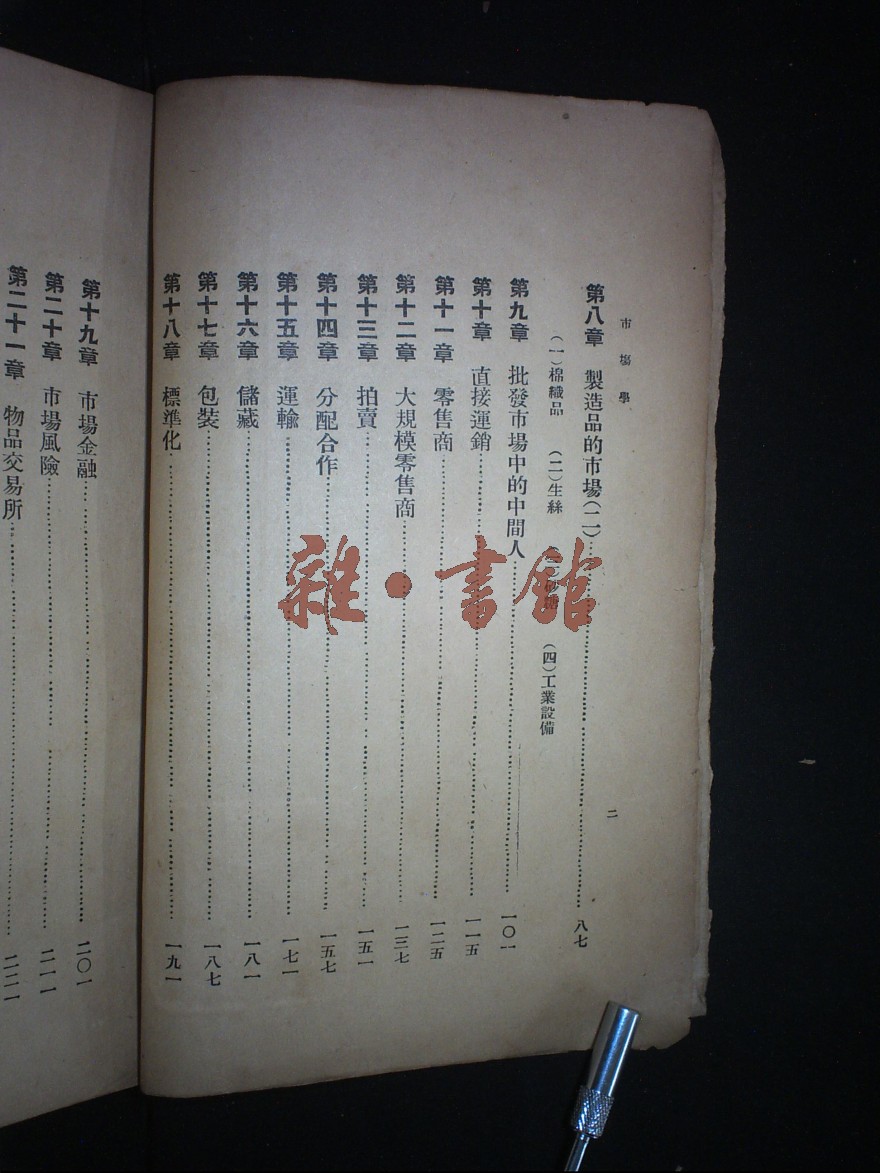 市場學
二
第八章　製造品的市場(二)……八七
(一)棉織品　(二)生絲　(四)工業設備
第九章　批發市場中的中間人……一〇一
第十章　直接運銷……一一五
第十一章　零售商……一二五
第十二章　大規模零售商……一三七
第十三章　拍賣……一五一
第十四章　分配合作……一五七
第十五章　運輸……一七一
第十六章　儲藏……一八一
第十七章　包裝……一八七
第十八章　標準化……一九一
第十九章　市場金融……二〇一
第二十章　市場風險……二一一
第二十一章　物品交易所……二二一
雜·書館